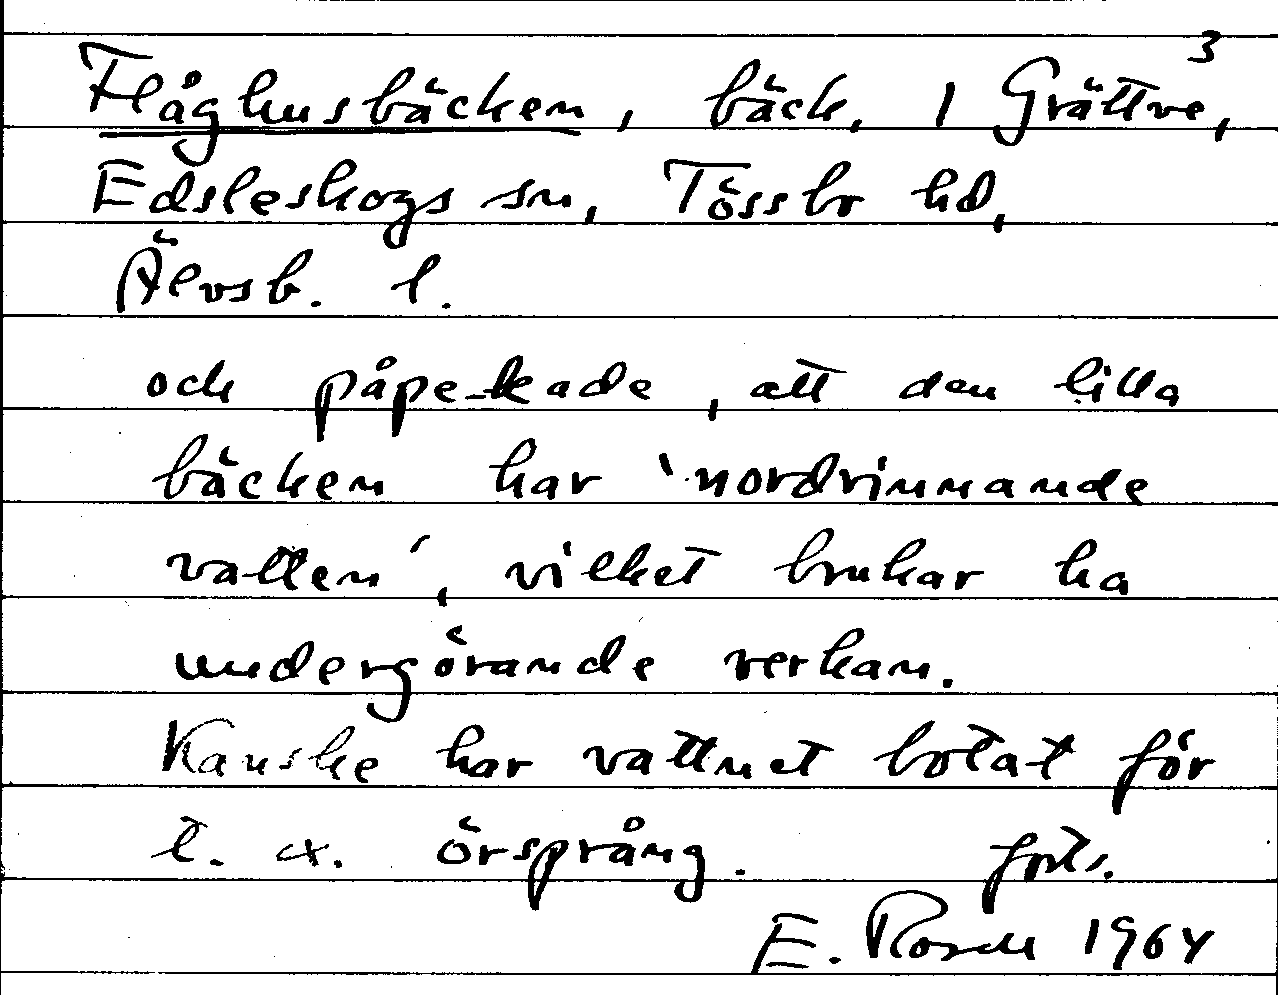 3
Flåghusbäcken, bäck, i Grättve,
Edsleskogs sn, Tössbr hd,
Älvsb. l.
och påpekade, att den lilla
bäcken har 'nordrinnande
vatten', vilket brukar ha
undergörande verkan.
Kanske har vattnet botat för
t. ex. örsprång. forts.
E. Rosell 1964